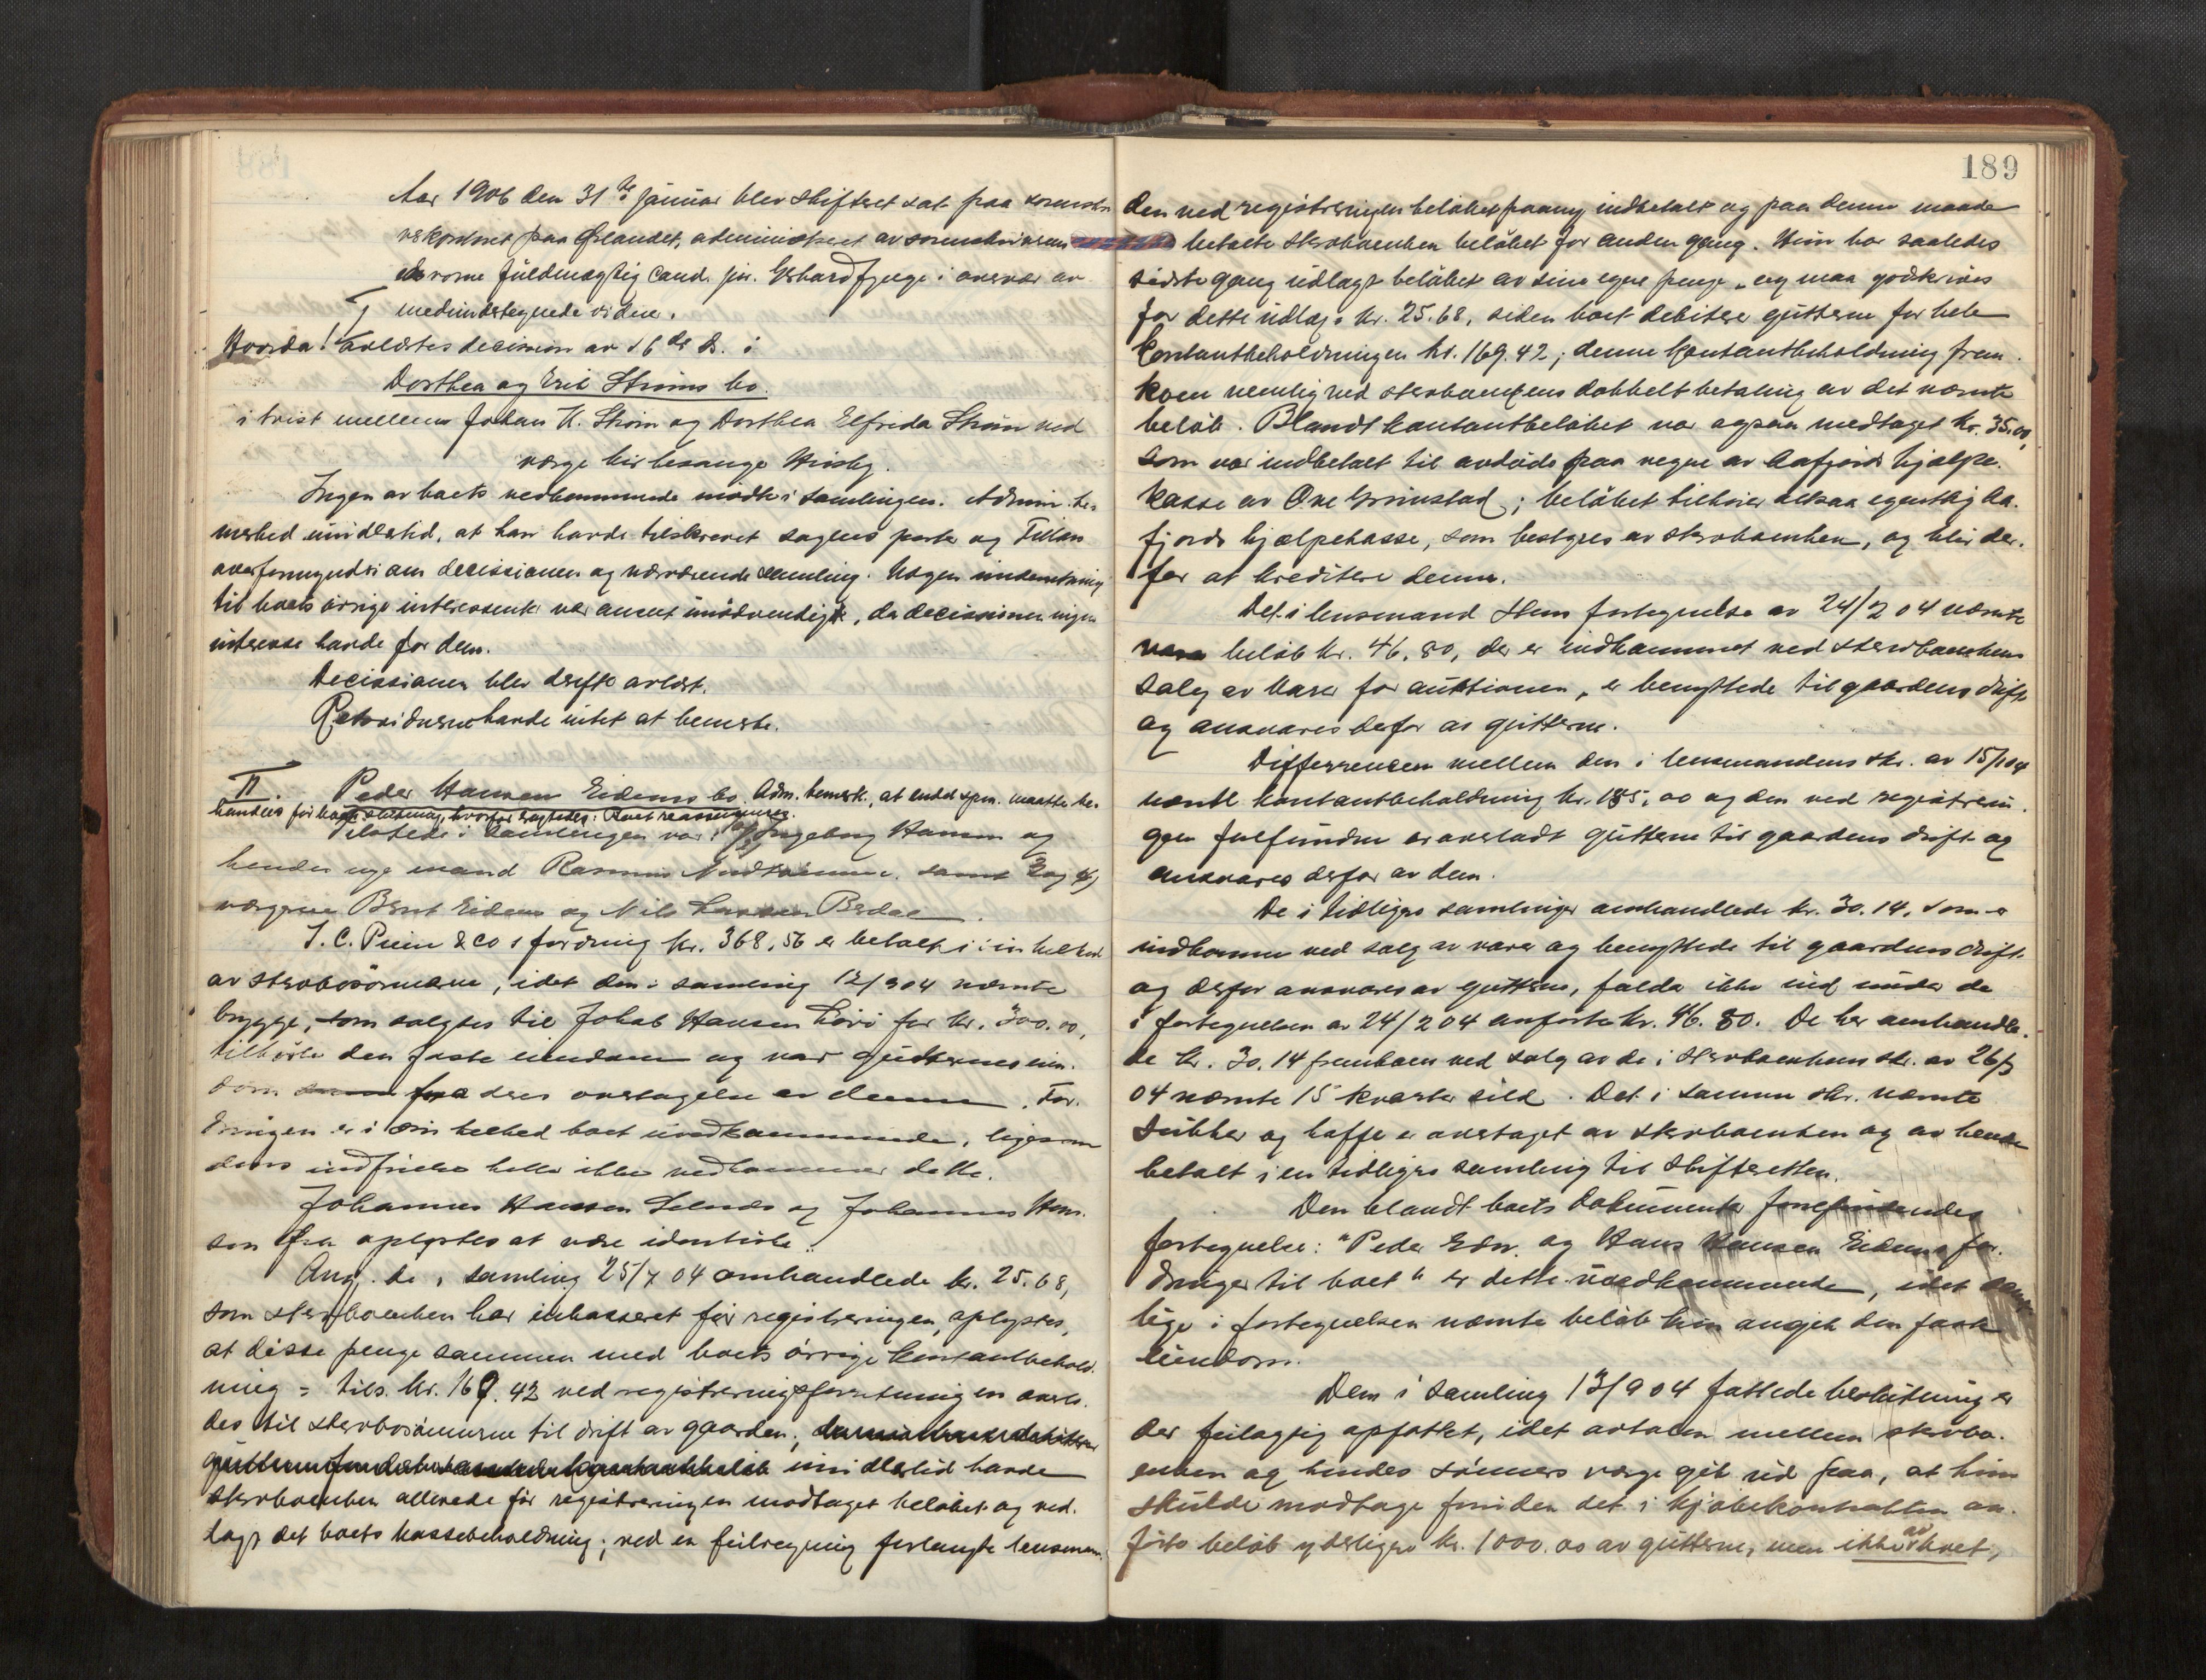 Aar 1906 den 31te januar blev skifteret sat paa sorenskri
verkontoret paa Ørlandet, administreret av sorenskriverens
edsvorne fuldmægtig cand. jur. Gerhard Fjuge i overvær av
medundertegnede vidne.
I
Hvorda! avlæstes decision av 16de ds. i
Dorthea og Erik Strøms bo.
i tvist mellem Johan K. Strøm og Dorthea Elfrida Strøm ved
værge kirkesanger
Ingen av boets vedkommende mødte i samlingen. Admin. be-
merked imidlertid, at han havde tilskrevet sagens parter og
overformynderi om decisionen og nærværende samling. Nogen underretning
til boets øvrige interessenter var anseet unødvendigt, da decisionen ingen
interesse havde for dem.
Decisionen blev derefter avlæst.
Retsvidnerne havde intet at bemerke.
II. Peder Hansen Eidems bo. Adm. bemerk., at endel spm. maatte be-
handles før boets slutning, hvorfor
Tilstede i samlingen var: Ingeborg Hansen og
hendes nye mand Rasmus samt
værgerne Bernt Eidem og Nils Larsen
I. C. Piene & Co s fordring kr. 368,56 er betalt i sin helhed
av sterbosønnerne, idet den i samling 12/9 04 nævnte
brygge, som solgtes til Jakob Hansen for kr. 300.00,
tilhørte den faste eiendom og var gutternes eien-
dom fra deres overtagelse av denne. For-
dringen er i sin helhed boet uvedkommende, ligesom
dens indfrielse heller ikke vedkommer dette.
Johannes Hansen Selnes og Johannes Han-
sen Fra oplystes at være identiske.
Ang. de i samling 25/7 04 omhandlede kr. 25.68,
som sterboenken har inkasseret før registreringen, oplystes,
at disse penge sammen med boets øvrige kontantbehold-
ning = tils. kr. 169.42 ved registreringsforretningen overl.
des til sterbosønnerne til drift av gaarden;
imidlertid havde
sterboenken allerede før registreringen modtaget beløbet og ved-
lagt det boets kassebeholdning; ved en feilregning forlangte lensman-
189
den ved registreringen beløbet paany indbetalt og paa denne maade
betalte sterboenken beløbet for anden gang. Hun har saaledes
sidste gang udlagt beløbet av sine egne penge, og maa godskrives
for dette udlæg kr. 25.68, siden boet debiterer gutterne for hele
kontantbeholdningen kr. 169.42; denne kontantbeholdning frem-
kom nemlig ved sterboenkens dobbeltbetaling av det nævnte
beløb. Blandt kontantbeløbet var ogsaa medtaget kr. 35.00,
som var indbetalt til avdøde paa vegne av Aafjords hjælpe-
kasse av Ove Grimstad; beløbet tilhører altsaa egentlig Aa-
fjords hjælpekasse, som bestyres av sterboenken, og blir der-
for at kreditere denne.
Det i lensmand Stens fortegnelse av 24/2 04 nævnte
beløb kr. 46.80, der er indkommet ved sterboenkens
salg av varer før auktionen, er benyttede til gaardens drift
og ansvares derfor av gutterne.
Differencen mellem den i lensmandens skr. av 15/1 04
nævnte kontantbeholdning kr. 185,00 og den ved registrerin-
gen forefundne er overladt gutterne til gaardens drift og
ansvares derfor av dem.
De i tidligere samlinger omhandlede kr. 30.14, som er
indkommen ved salg av varer og benyttede til gaardens drift
og derfor ansvares av gutterne, falder ikke ind under de
i fortegnelsen av 24/2 04 anførte kr. 46.80. De her omhandle-
de kr. 30.14 fremkom ved salg av de i sterboenkens skr. av 26/3
04 nævnte 15 kvarter sild. Det i samme skr. nævnte
sukker og kaffe er overtaget av sterboenken og av hende
betalt i en tidligere samling til skifteretten.
Den blandt boets dokumenter forefindendes
fortegnelse: "Peder Edv. og Hans Hansen Eidems for-
dringer til boet" er dette uvedkommende, idet samt
lige i fortegnelsen nævnte beløb kun angik den faste
eiendom.
Den i samling 13/9 04 fattede beslutning er
der feilagtig opfattet, idet avtalen mellem sterbo-
enken og hendes sønners værge gik ud paa, at hun
skulde modtage foruden det i kjøbekontrakten an-
førte beløb yderligere kr. 1000.00 av gutterne, men ikke av boet,